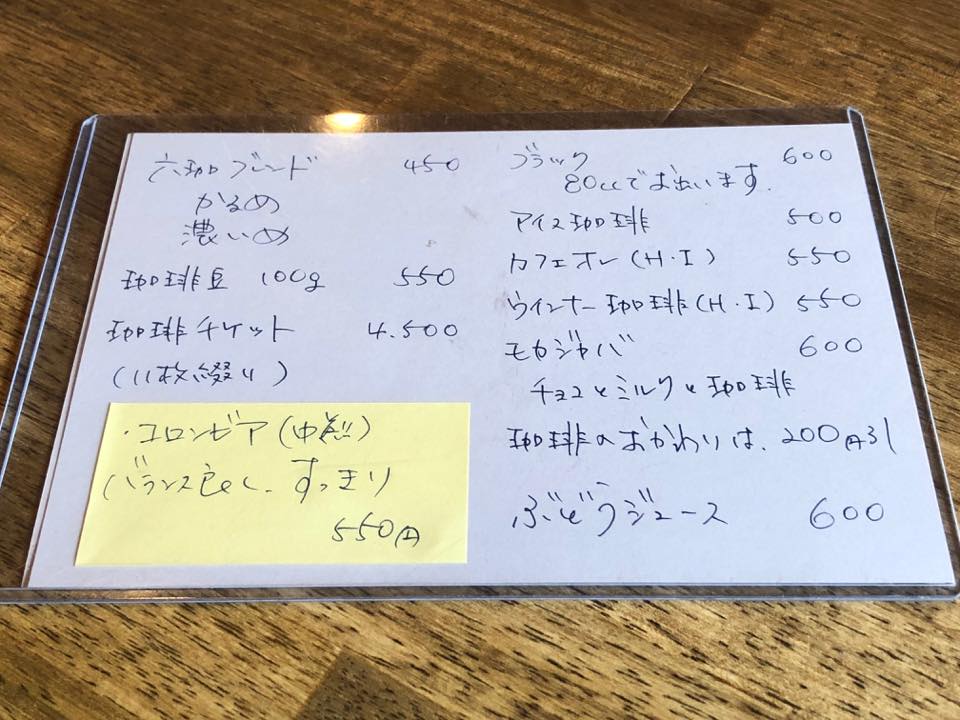 六珈ブレンド 450
かるめ
濃いめ
珈琲豆 100g 550
珈琲チケット 4.500
(11枚綴り)
・コロンビア(中煎)
バランス良く、すっきり
550円
ブラック 600
80ccでお出います。
アイス珈琲 500
カフェオレ(H・I) 550
ウインナー珈琲(H・I) 550
モカジャバ 600
チョコとミルクと珈琲
珈琲のおかわりは、200円引
ぶどうジュース 600